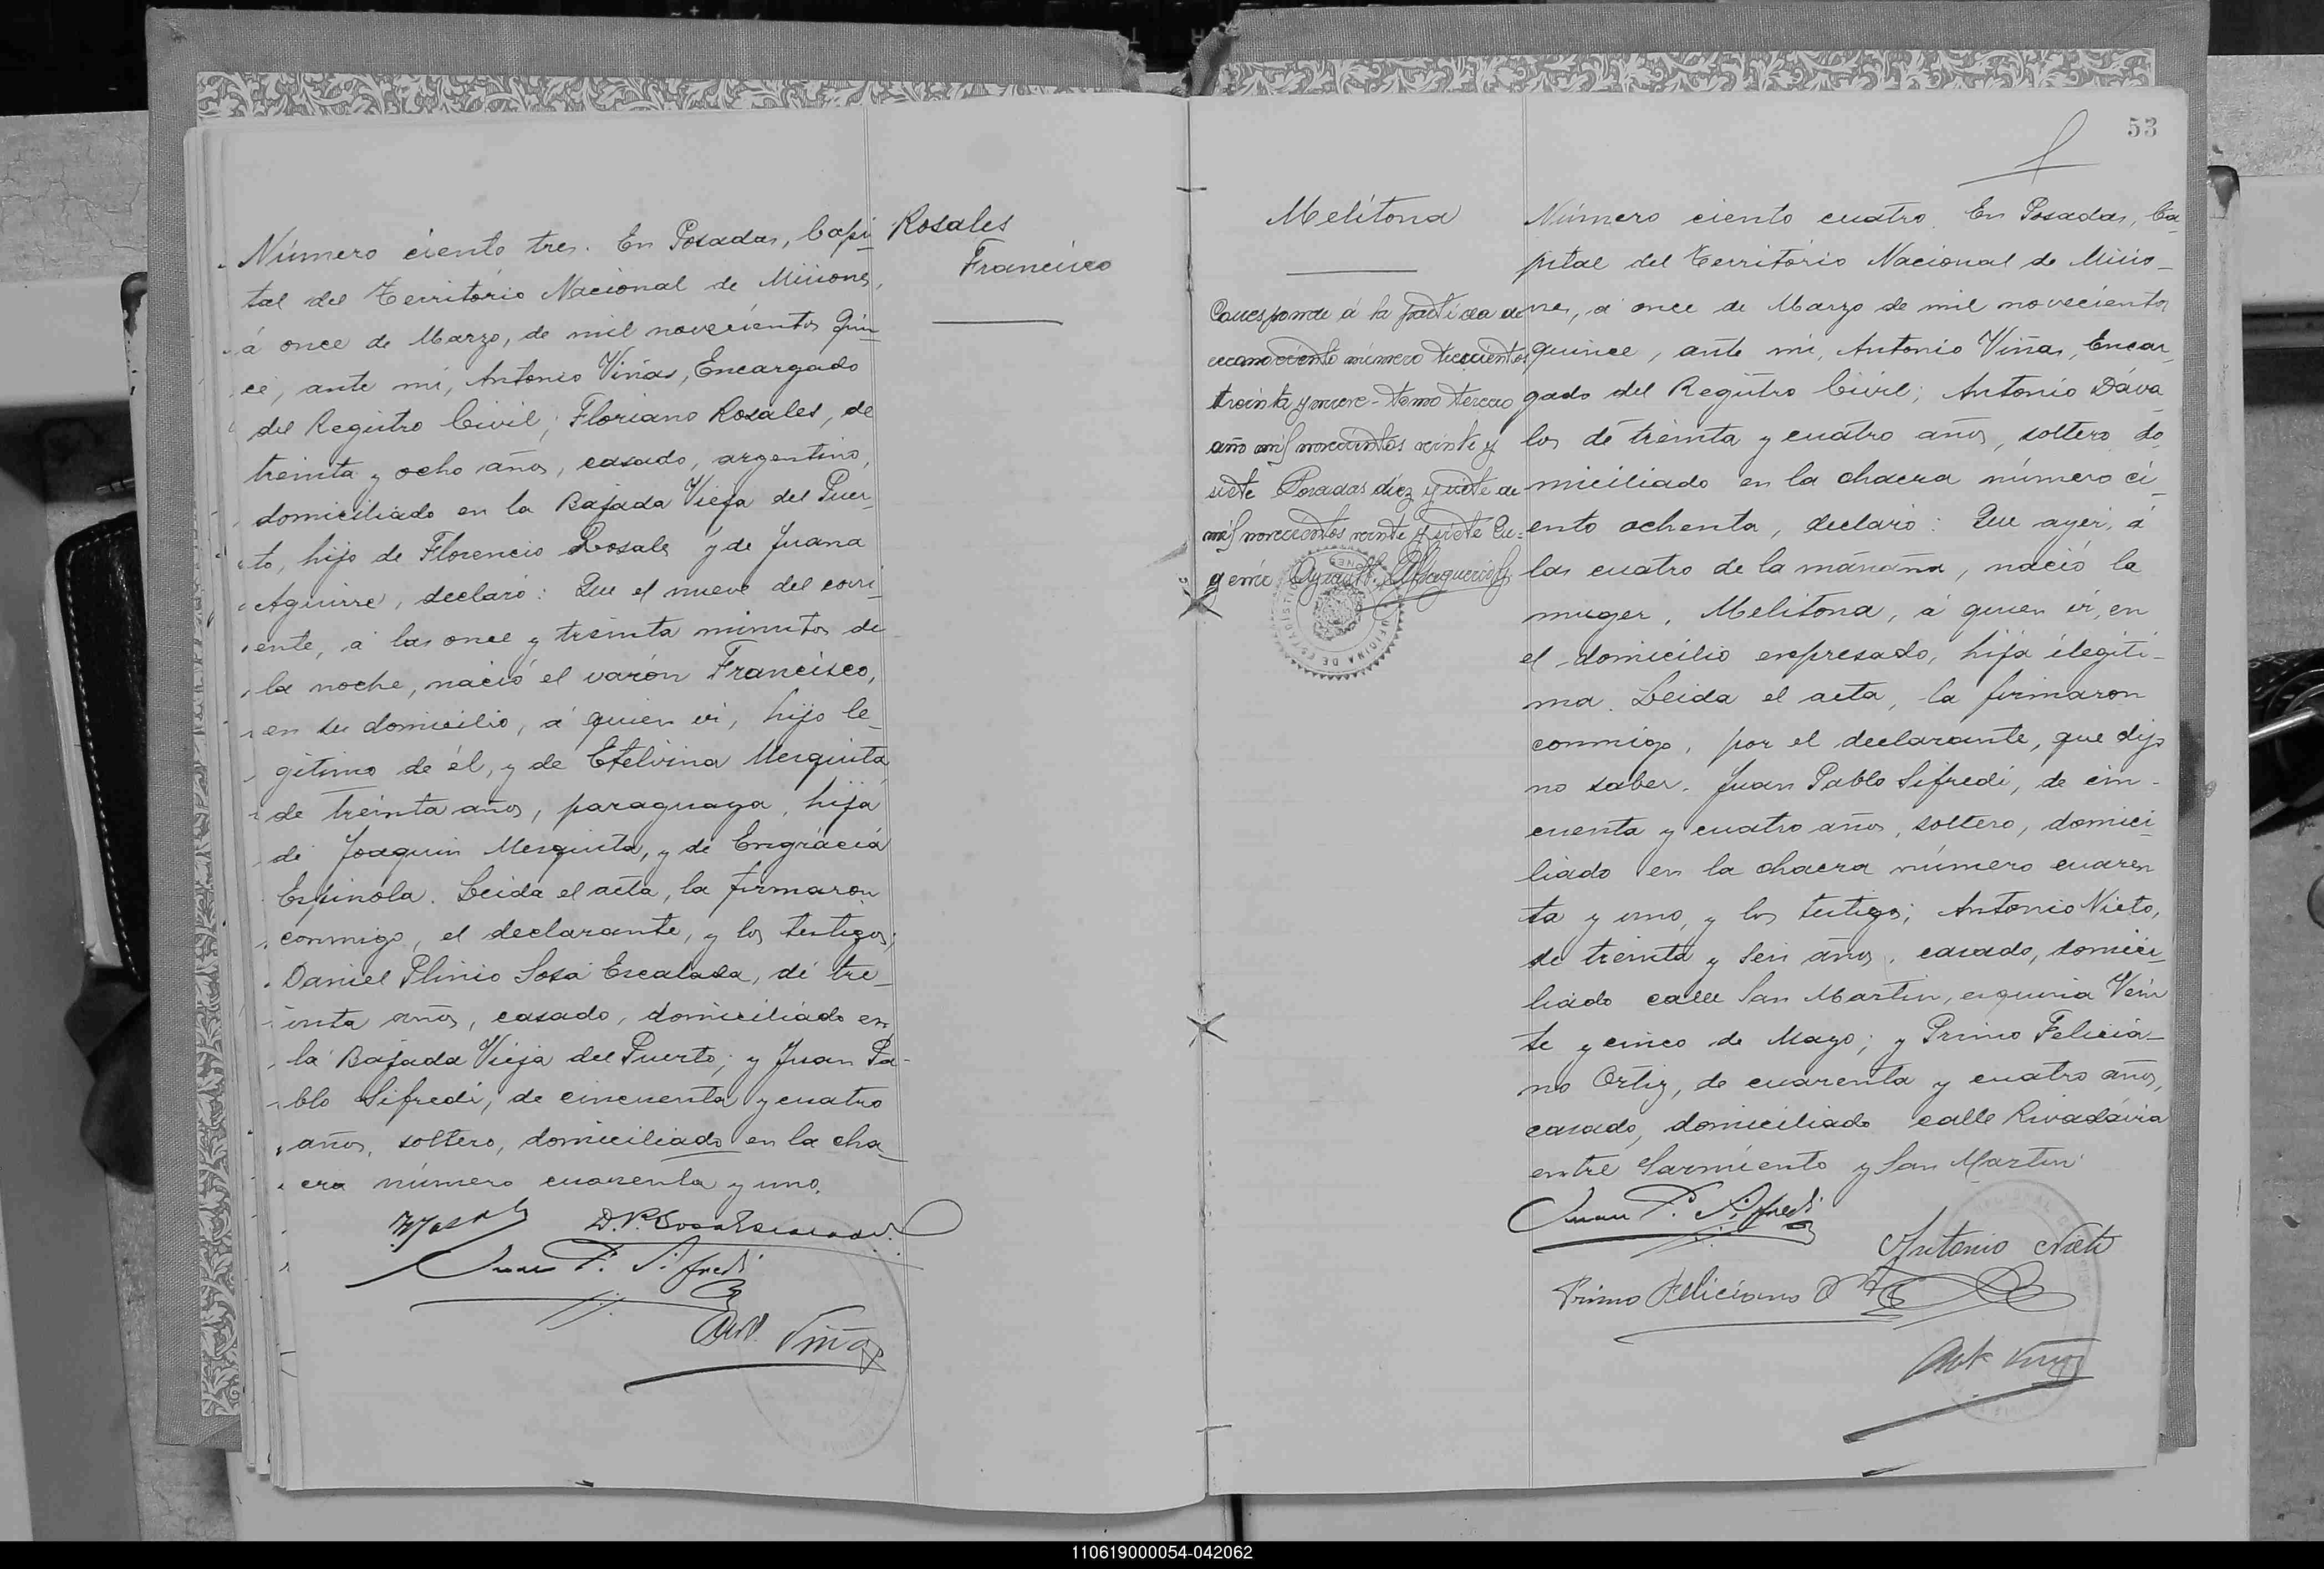 Número ciento tres. En Posadas, Capi-
tal del Territorio Nacional de Misiones,
á once de Marzo, de mil novecientos quin-
ce, ante mí, Antonio Viñas, Encargado
del Registro Civil; Floriano Rosales, de
treinta y ocho años, casado, argentino,
domiciliado en la Bajada Vieja del Puer-
to, hijo de Florencio Rosales y de Juana
Aguirre, declaró: Que el nueve del corri-
ente, á las once y treinta minutos de
la noche, nació el varón Francisco,
en su domicilio, á quien ví, hijo le-
gitimo de él, y de Etelvina Mesquita,
de treinta años, paraguaya, hija
de Joaquin Mesquita, y de Engrácia
Espinola. Leida el acta, la firmaron
conmigo, el declarante, y los testigos;
Daniel Plinio Sosa Escalada, de tre-
inta años, casado, domiciliado en
la Bajada Vieja del Puerto; y Juan Pa-
blo Sifredi, de cincuenta y cuatro
años, soltero, domiciliado en la cha-
cra número cuarenta y uno.
D. P. Sosa Escalada
Juan P. Sifredi
Ant. Viñas
Rosales
Francisco
53
Melitona
Corresponde á la partida de
reconocimiento número trescientos
treinta y nueve - tomo tercero
año mil novecientos veinte y
siete Posadas diez y siete de
mil novecientos veinte y siete Eu-
genio
OFICINA DE ESTADISTICA
Número ciento cuatro. En Posadas, Ca-
pital del Territorio Nacional de Misio-
nes, á once de Marzo de mil novecientos
quince, ante mí, Antonio Viñas, Encar-
gado del Registro Civil; Antonio Dáva-
los de treinta y cuatro años, soltero, do-
miciliado en la chacra número ci-
ento ochenta, declaró: Que ayer, á
las cuatro de la mañana, nació la
muger, Melitona, á quien ví, en
el domicilio expresado, hija ilegiti-
ma. Leida el acta, la firmaron
conmigo, por el declarante, que dijo
no saber. Juan Pablo Sifredi, de cin-
cuenta y cuatro años, soltero, domici-
liado en la chacra número cuaren
ta y uno, y los testigos; Antonio Nieto,
de treinta y seis años, casado, domici-
liado calle San Martin, esquina Vein
te y cinco de Mayo; y Primo Felicia-
no Ortiz, de cuarenta y cuatro años,
casado, domiciliado calle Rivadávia
entre Sarmiento y San Martin
Juan P. Sifredi
Antonio Nieto
Primo Feliciano Ortiz
Ant Viñas
110619000054-042062